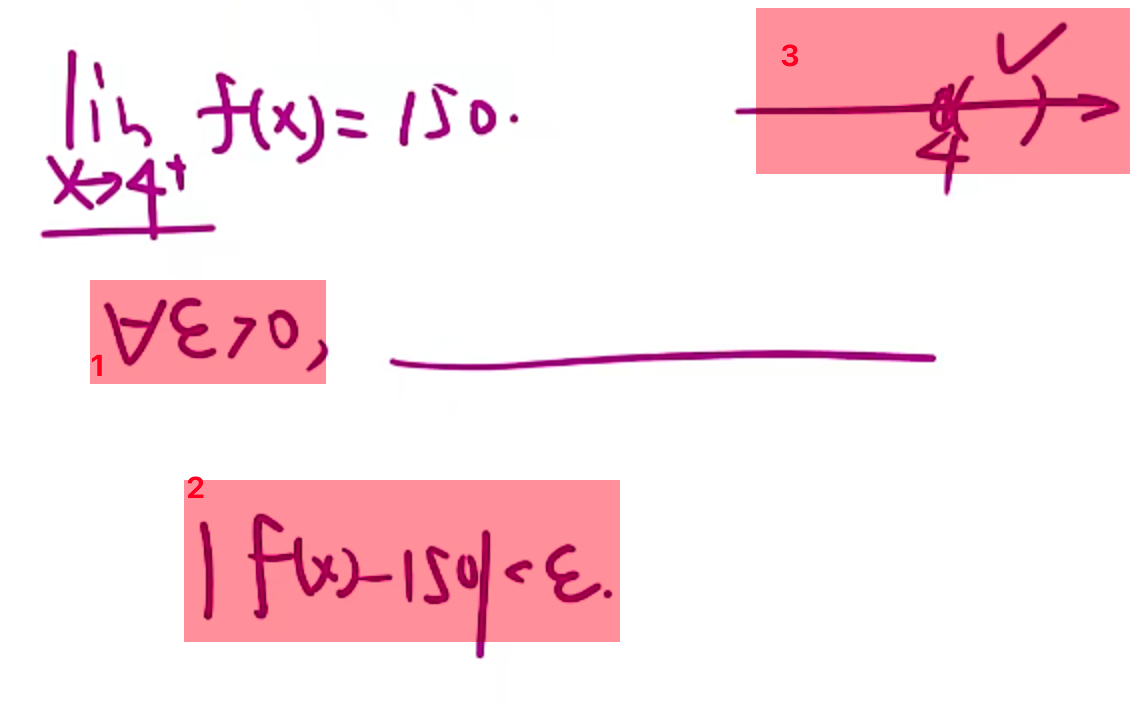 lim f(x) = 150.
x→4⁺
3
✓
4
1 ∀ε>0,
2
|f(x)-150|<ε.